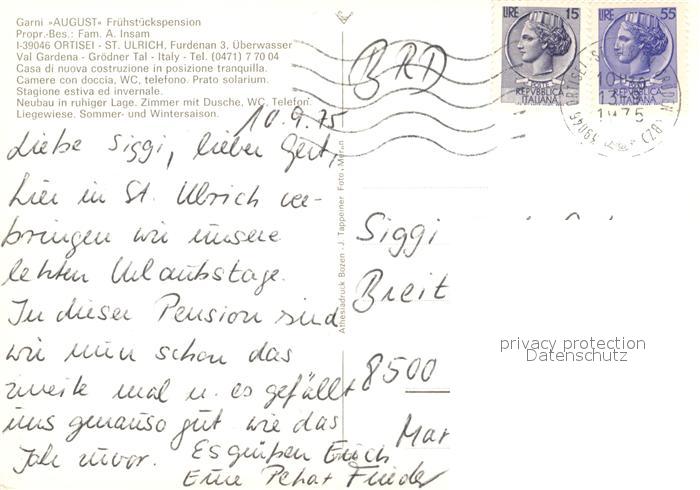 Garni »AUGUST« Frühstückspension
Propr.-Bes.: Fam. A. Insam
I-39046 ORTISEI - ST. ULRICH, Furdenan 3, Überwasser
Val Gardena - Grödner Tal - Italy - Tel. (0471) 7 70 04
Casa di nuova costruzione in posizione tranquilla.
Camere con doccia, WC, telefono. Prato solarium.
Stagione estiva ed invernale.
Neubau in ruhiger Lage. Zimmer mit Dusche, WC, Telefon.
Liegewiese. Sommer- und Wintersaison.
10.9.75
Liebe Siggi, lieber Gert,
hier in St. Ulrich ver-
bringen wir unsere
letzten Urlaubstage.
In dieser Pension sind
wir nun schon das
zweite mal u. es gefällt
uns genauso gut wie das
Jahr zuvor. Es grüßen Euch
Eure Peter Frieder
Athesiadruck Bozen - J. Tappeiner Foto, Meran
BRD
LIRE 15
POSTE
REPUBBLICA
ITALIANA
LIRE 55
REPUBBLICA
ITALIANA
1975
39046
(BZ)
Siggi
Breit
8500
Mar
privacy protection
Datenschutz